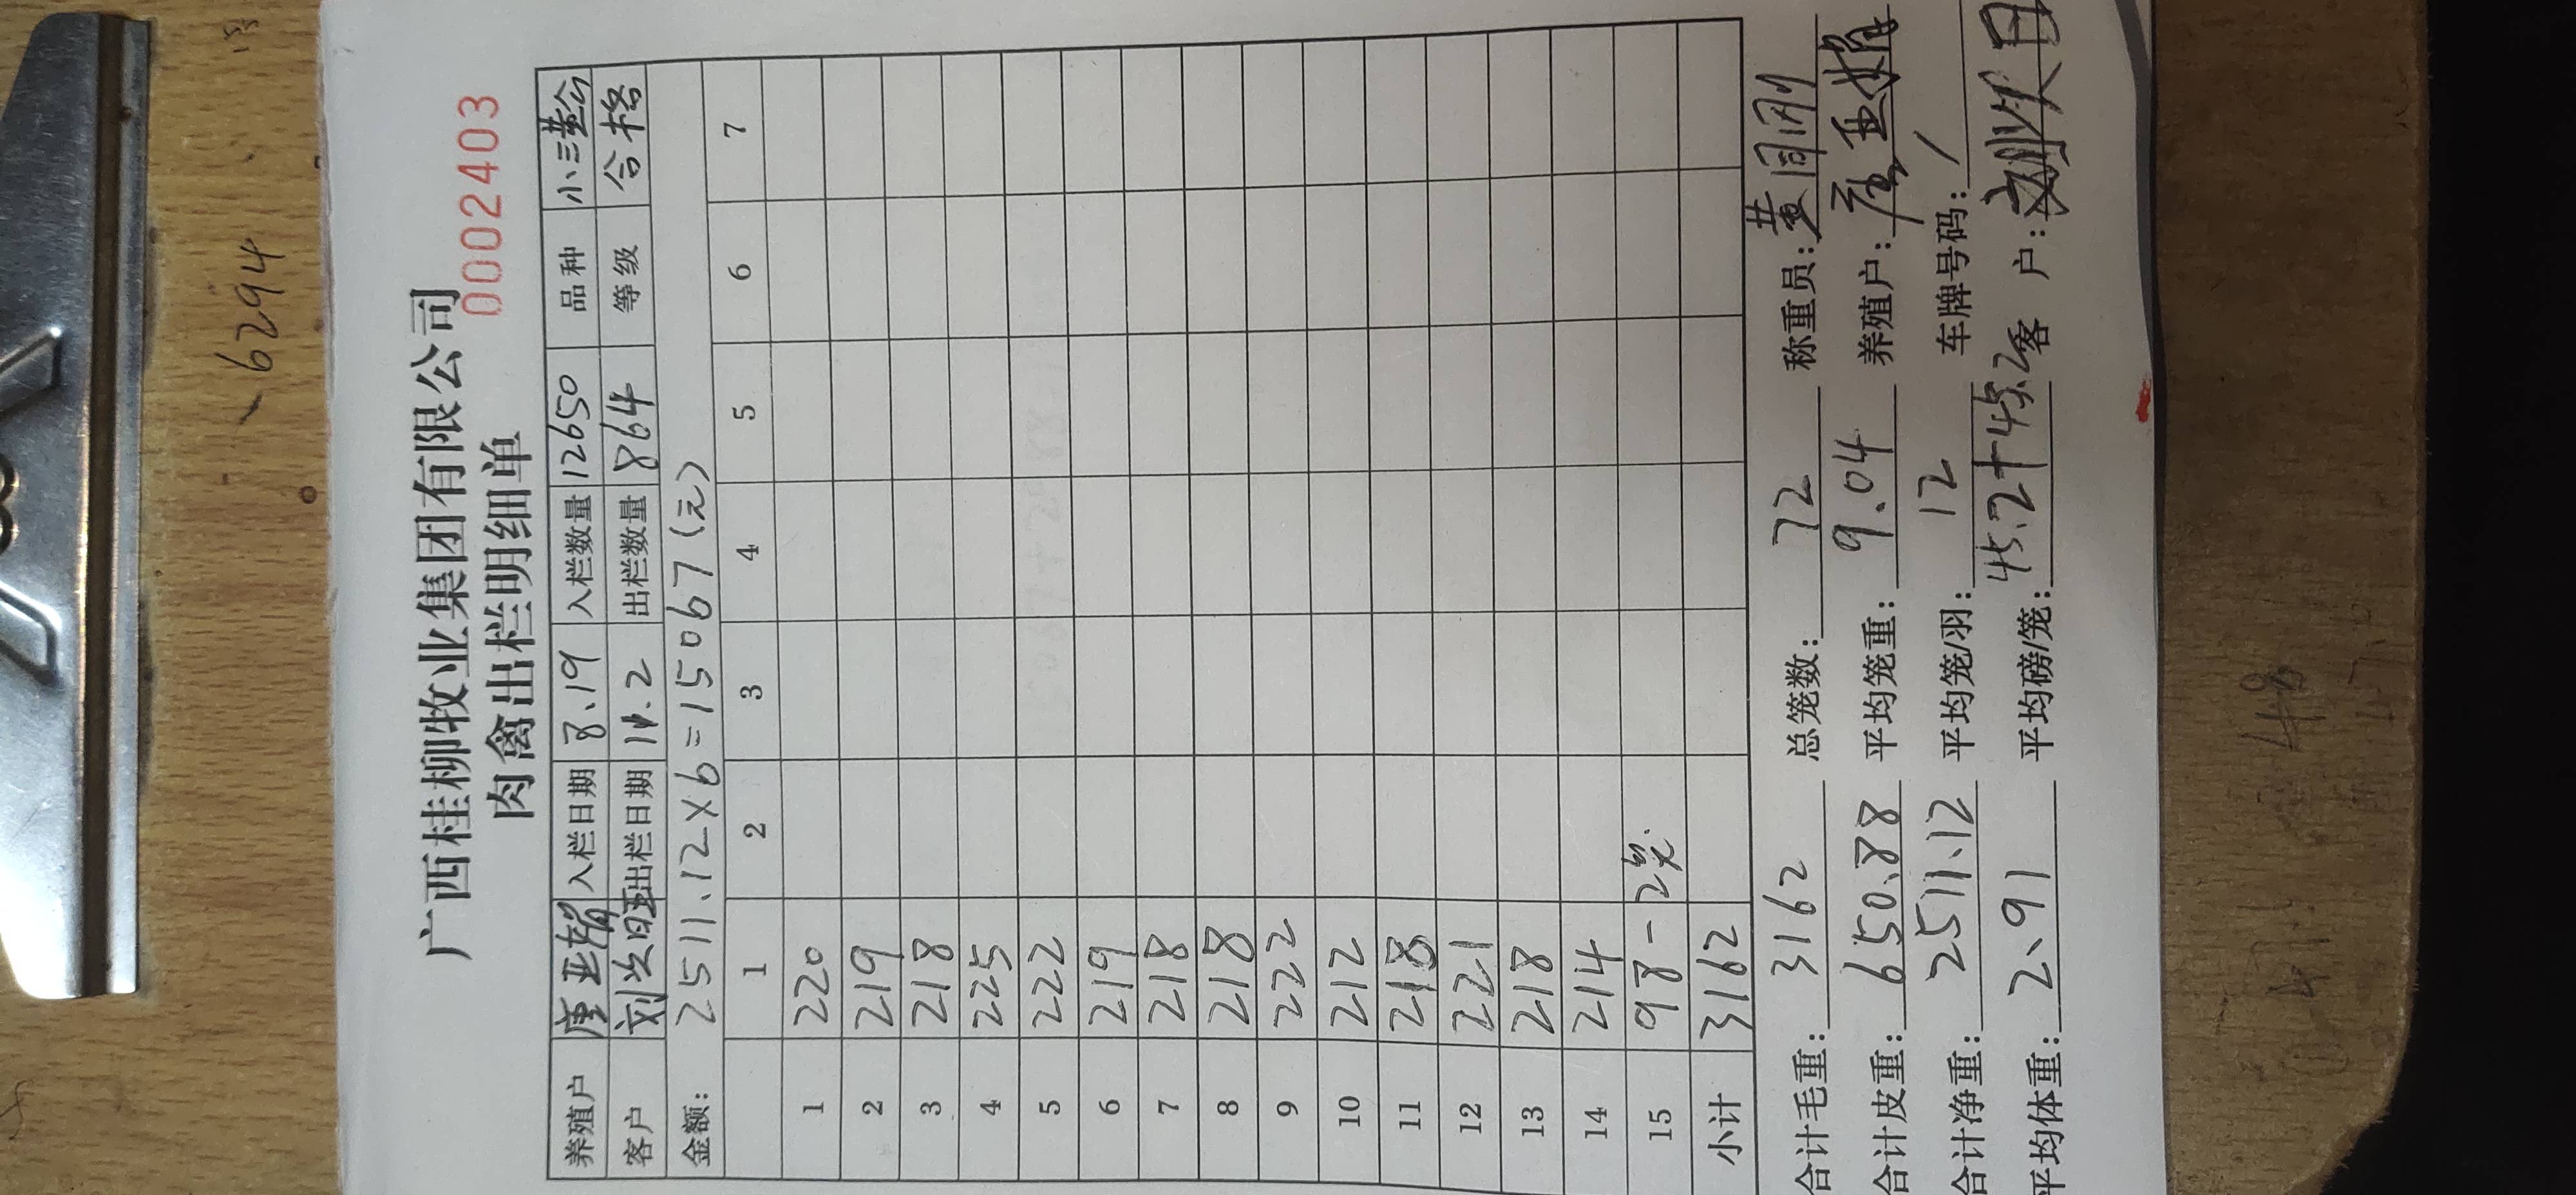 广西桂柳牧业集团有限公司
肉禽出栏明细单
0002403
养殖户 唐 入栏日期 8.19 入栏数量 12650 品种 小三黄
客户 刘 出栏日期 11.2 出栏数量 864 等级 合格
金额: 2511.12×6=15067(元)
1 2 3 4 5 6 7
1 220
2 219
3 218
4 225
5 222
6 219
7 218
8 218
9 222
10 212
11 218
12 221
13 218
14 214
15 98-2笼
小计 3162
合计毛重: 3162 总笼数: 72 称重员: 黄
合计皮重: 650.88 平均笼重: 9.04 养殖户: 唐
合计净重: 2511.12 平均笼/羽: 12 车牌号码: /
平均体重: 2.91 平均磅/笼: 45.2+45.2 客 户:
6294
48